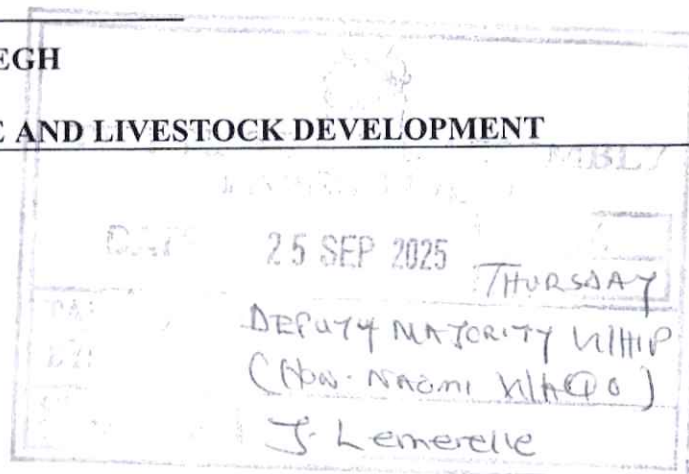 EGH
E AND LIVESTOCK DEVELOPMENT
MBLY
DATE
25 SEP 2025
THURSDAY
DEPUTY MAJORITY WHIP
(HON. NAOMI WAQO)
J. Lemerelle